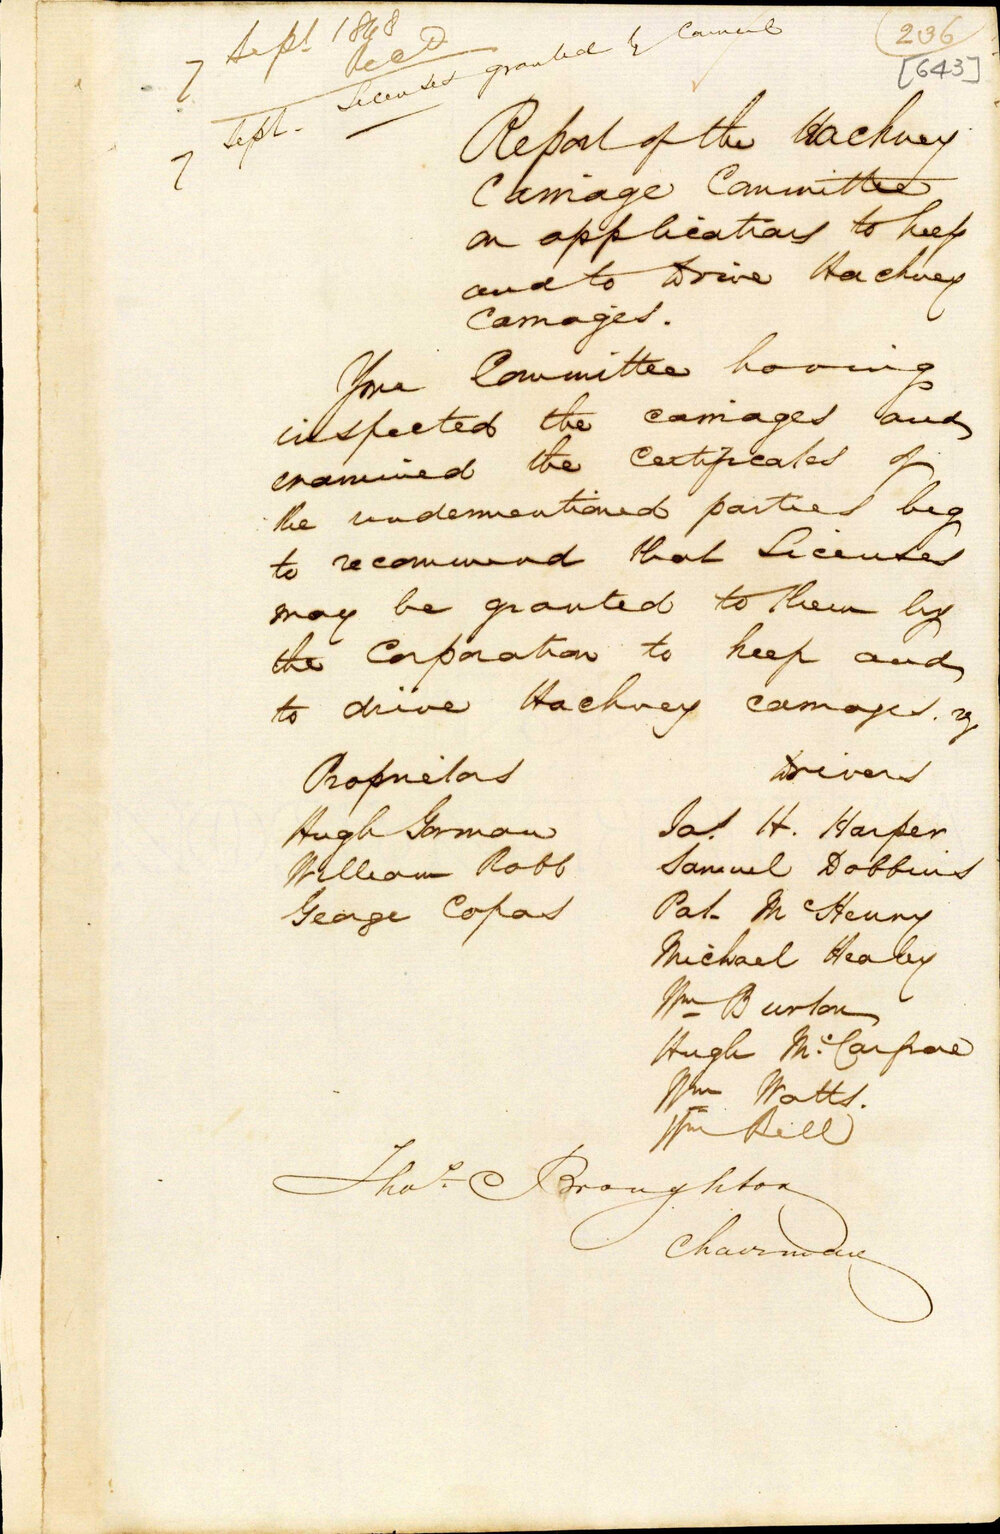 7 Sept 1848
Recd
7 Sept. Licenses granted by Council
236
[643]
Report of the Hackney
Carriage Committee
on applications to keep
and to Drive Hackney
Carriages.
Your Committee having
inspected the carriages and
examined the Certificates of
the undermentioned parties beg
to recommend that Licenses
may be granted to them by
the Corporation to keep and
to drive Hackney carriages.
Proprietors Drivers
Hugh Gorman Jas. H. Harper
William Robb Samuel Dobbins
George Copas Pat. McHenry
Michael Healey
Wm Burton
Hugh McCarfrae
Wm Watts.
Wm Bell
Thos. C Broughton
Chairman